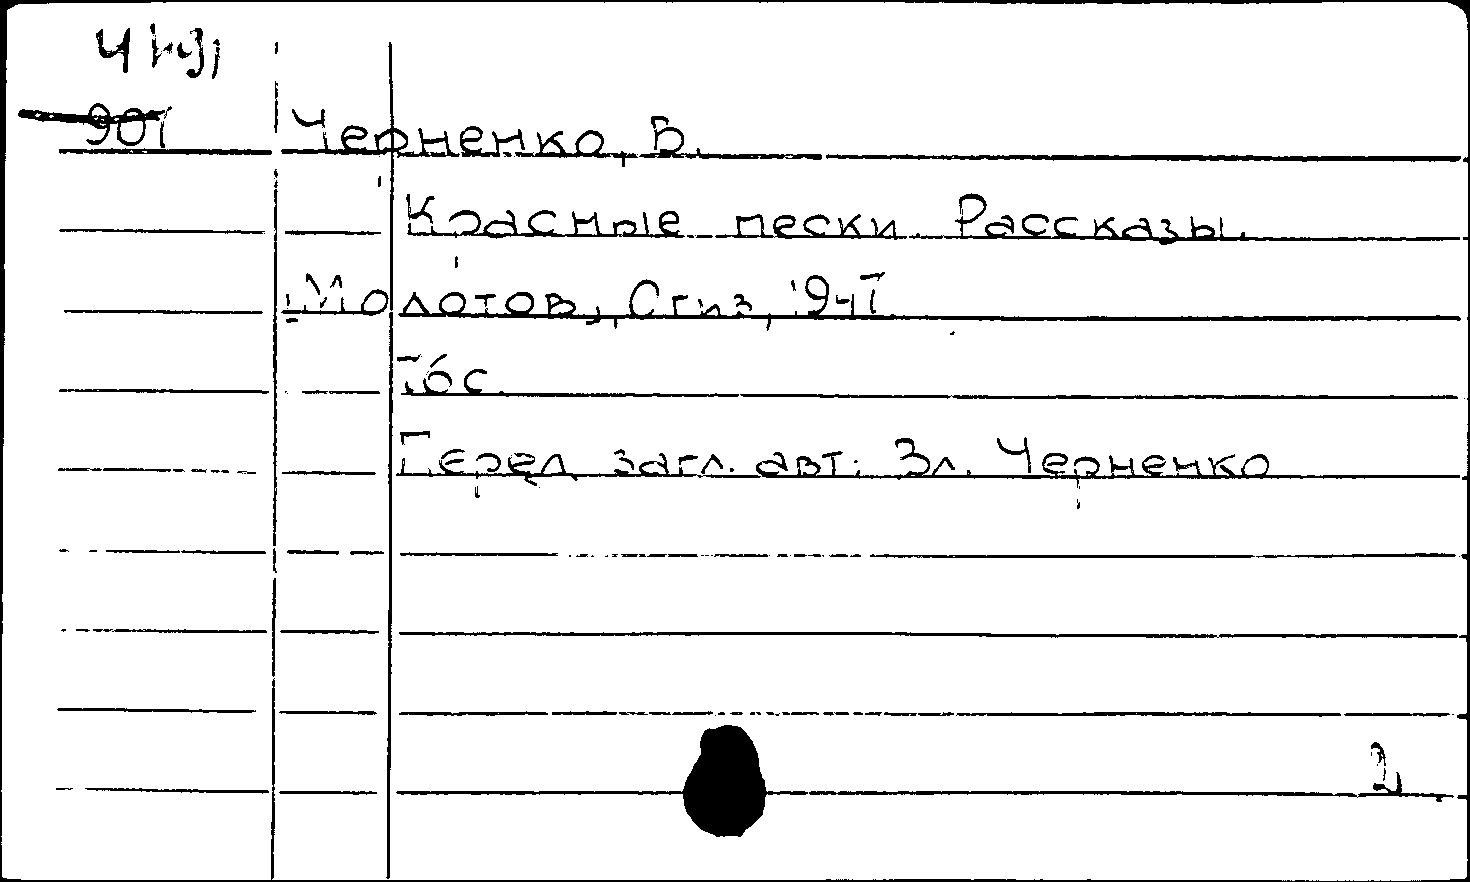 Черненко, В.
Красные пески. Рассказы.
Молотов, Огиз, 1947
76 с.
Перед загл. авт.: Вл. Черненко
2